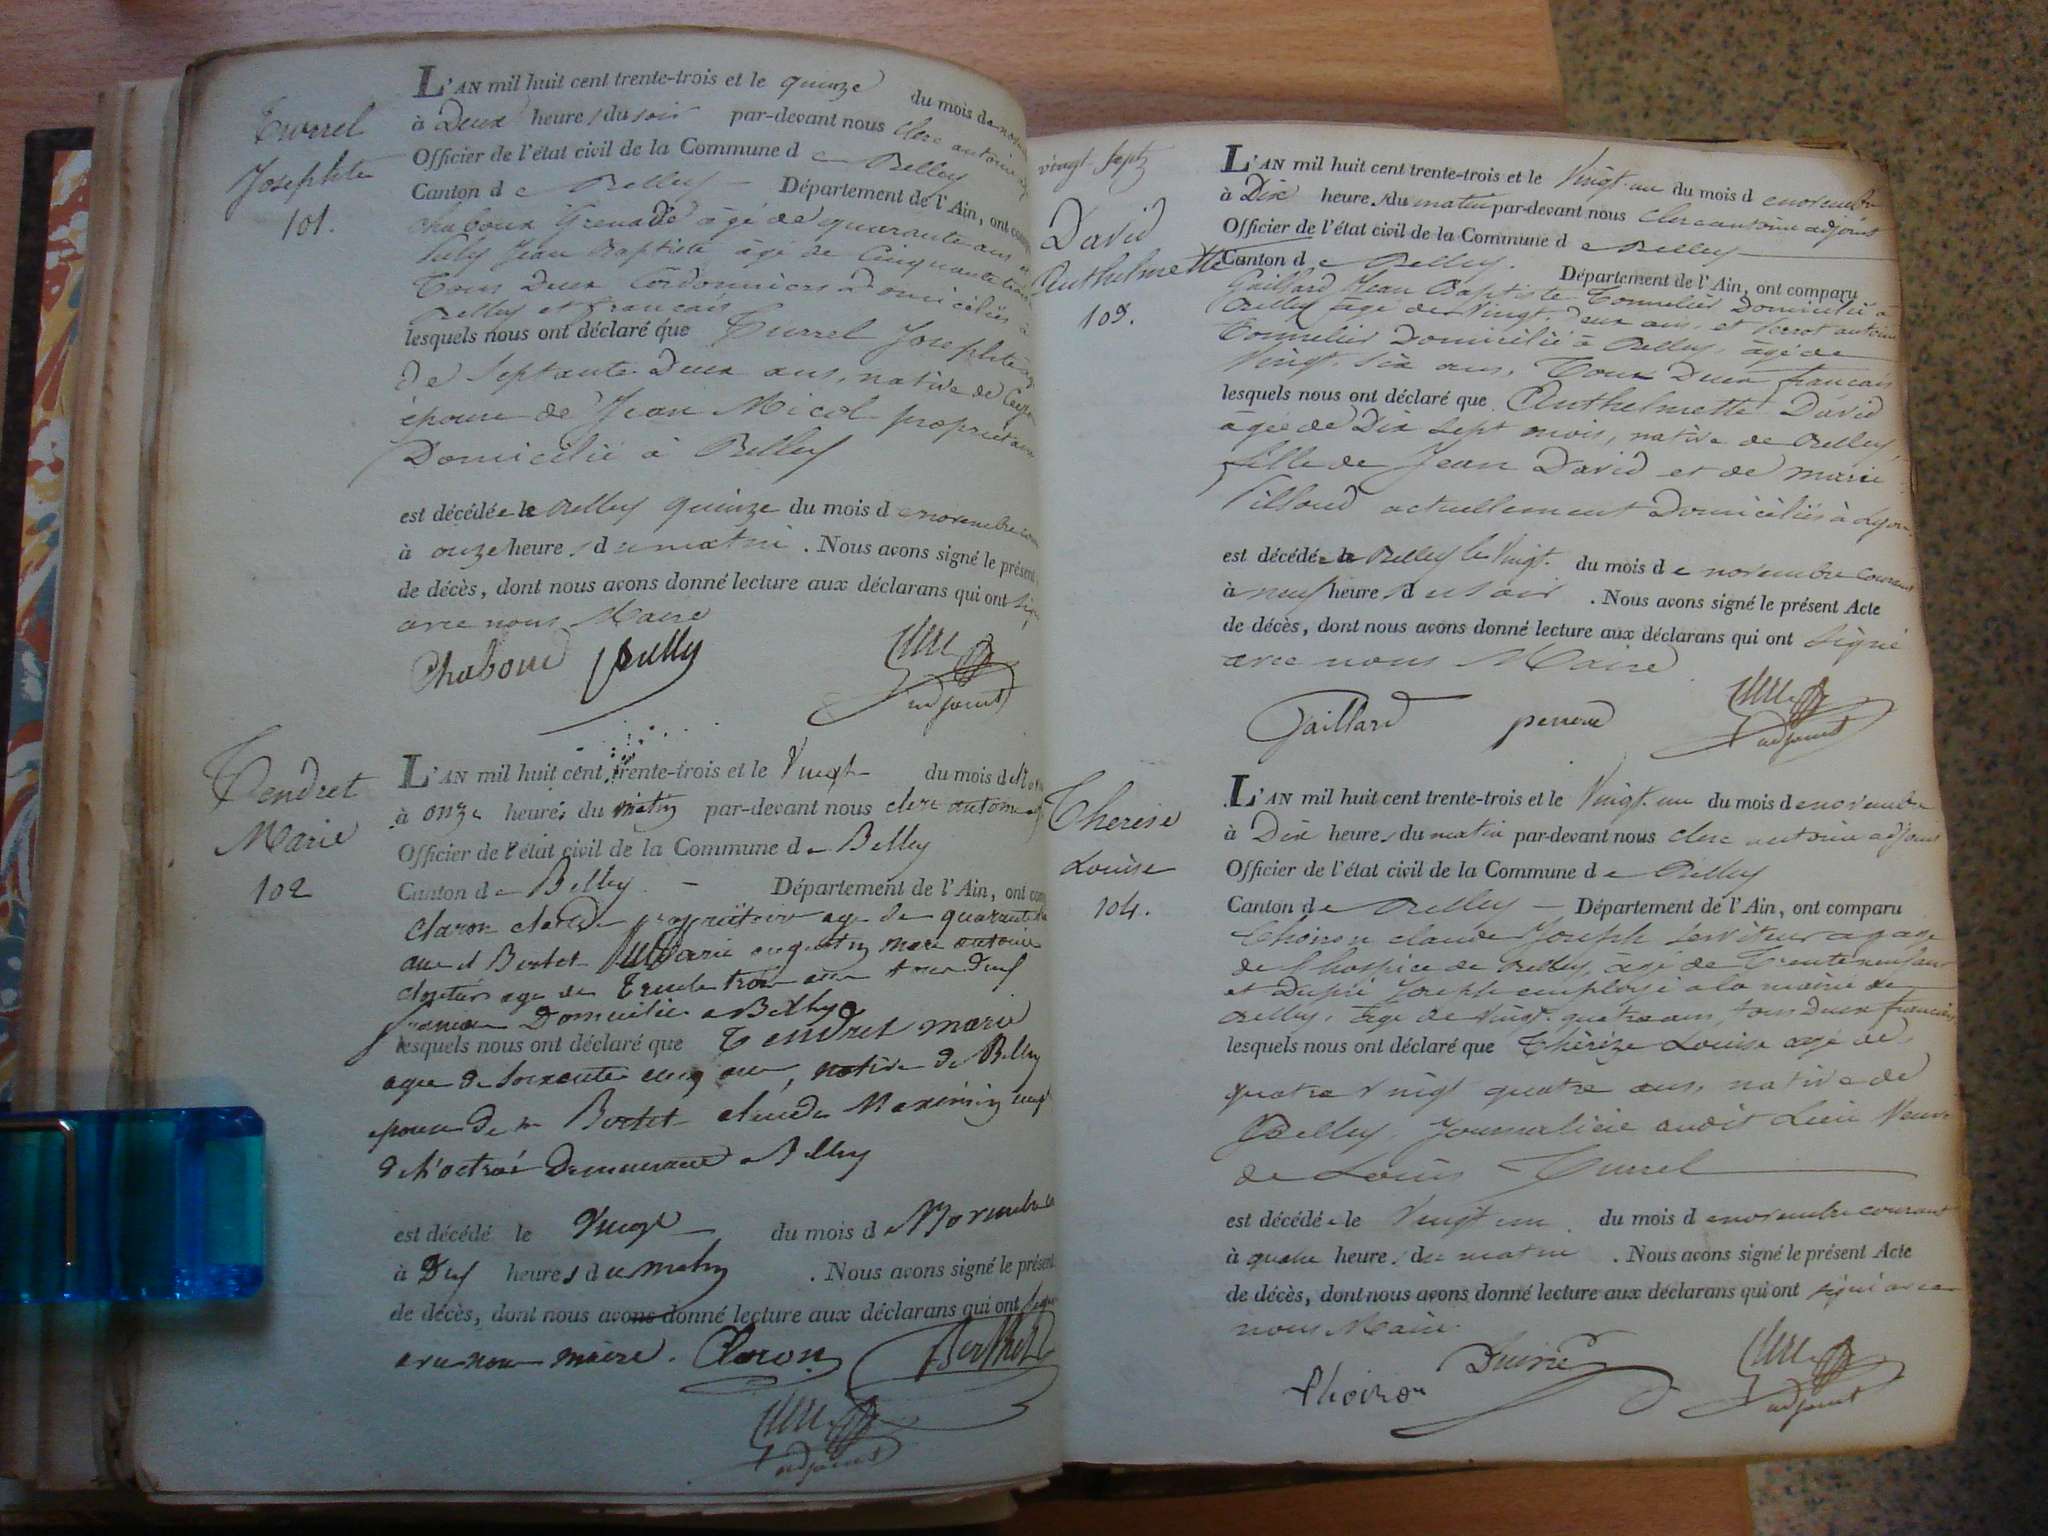 Turrel
Josephte
101.
L'AN mil huit cent trente-trois et le quinze du mois de
à Deux heures du soir par-devant nous Clerc antoine
Officier de l'état civil de la Commune de Belley
Canton de Belley - Département de l'Ain, ont
chaboux Grenadé âgé de quarante ans et
Jean Baptiste âgé de Cinquante trois
Tous Deux Cordonniers Domiciliés à
Belley et français
lesquels nous ont déclaré que Turrel Josephte
de Septante Deux ans, native de
épouse de Jean Micol propriétaire
Domicilié à Belley
est décédée le Belley quinze du mois de novembre
à onze heures du matin. Nous avons signé le présent
de décès, dont nous avons donné lecture aux déclarans qui ont signé
avec nous Maire
adjoint
Tendret
Marie
102
L'AN mil huit cent trente-trois et le Vingt du mois de
à onze heures du matin par-devant nous clerc antoine
Officier de l'état civil de la Commune de Belley
Canton de Belley - Département de l'Ain, ont
claron claude propriétaire age de quarante
ans et Bertet Marie augustin marc antoine
docteur age de Trente trois ans tous deux
français Domiciliés a Belley
lesquels nous ont déclaré que Tendret marie
agee de soixante cinq ans, native de Belley
epouse de m. Bertet claude Maximin
de l'octroi Demeurant a Belley
est décédé le Vingt du mois de Novembre
à Dix heures du matin. Nous avons signé le présent
de décès, dont nous avons donné lecture aux déclarans qui ont signé
avec nous maire. Claron Berthet
adjoint
vingt sept
David
Anthelmette
103.
L'AN mil huit cent trente-trois et le Vingt-un du mois de novembre
à Dix heures du matin par-devant nous Clerc antoine adjoint
Officier de l'état civil de la Commune de Belley
Canton de Belley. Département de l'Ain, ont comparu
Gaillard Jean Baptiste Tonnelier Domicilié à
Belley âgé de Vingt-Deux ans, et antoine
Tonnelier Domicilié à Belley, âgé de
Vingt-Six ans, Tous Deux français
lesquels nous ont déclaré que Anthelmette David
âgée de Dix Sept mois, native de Belley,
fille de Jean David et de marie
actuellement Domiciliés à Lyon
est décédée le Belley le Vingt du mois de novembre courant
à neuf heures du soir. Nous avons signé le présent Acte
de décès, dont nous avons donné lecture aux déclarans qui ont Signé
avec nous Maire
Gaillard
adjoint
Therese
Louise
104.
L'AN mil huit cent trente-trois et le Vingt-un du mois de novembre
à Dix heures du matin par-devant nous clerc antoine adjoint
Officier de l'état civil de la Commune de Belley
Canton de Belley - Département de l'Ain, ont comparu
Thoiron claude Joseph Serviteur a gage
de l'hospice de Belley, âgé de Trente neuf ans
et Dupré Joseph employé a la mairie de
Belley, âgé de Vingt-quatre ans, tous Deux français
lesquels nous ont déclaré que Thérèze Louise agé de
quatre vingt quatre ans, native de
Belley, Journalière audit Lieu Veuve
de Louis Turrel
est décédée le Vingt un du mois de novembre courant
à quatre heures du matin. Nous avons signé le présent Acte
de décès, dont nous avons donné lecture aux déclarans qui ont signé avec
nous Maire.
Thoiron
adjoint